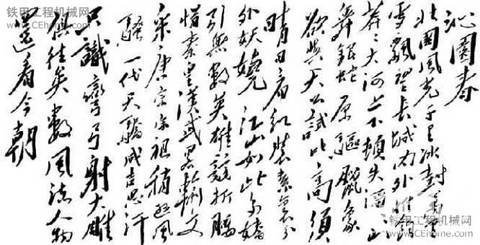 沁园春
北国风光千里冰封万里
雪飘望长城内外惟余
莽莽大河上下顿失滔滔山
舞银蛇原驱腊象
欲与天公试比高须
晴日看红装素裹分
外妖娆江山如此多娇
引无数英雄竞折腰
惜秦皇汉武略输文
采唐宗宋祖稍逊风
骚一代天骄成吉思汗
只识弯弓射大雕
俱往矣数风流人物
还看今朝
铁甲工程机械网
铁甲工程机械网
铁甲工程机械网